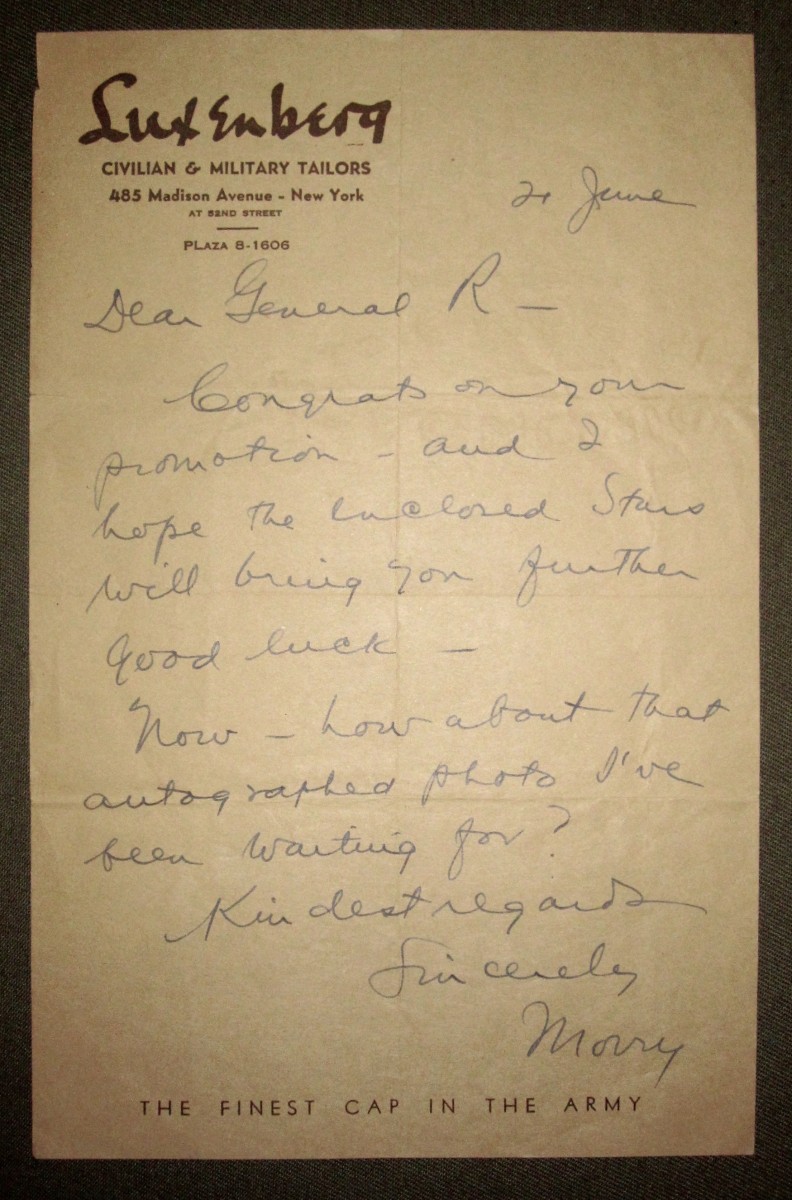 Luxenberg
CIVILIAN & MILITARY TAILORS
485 Madison Avenue - New York
AT 52ND STREET
PLAZA 8-1606
June
Dear General R —
Congrats on your
promotion - and I
hope the enclosed Stars
will bring you further
good luck —
Now - how about that
autographed photo I've
been waiting for?
Kindest regards
Sincerely
Morry
THE FINEST CAP IN THE ARMY